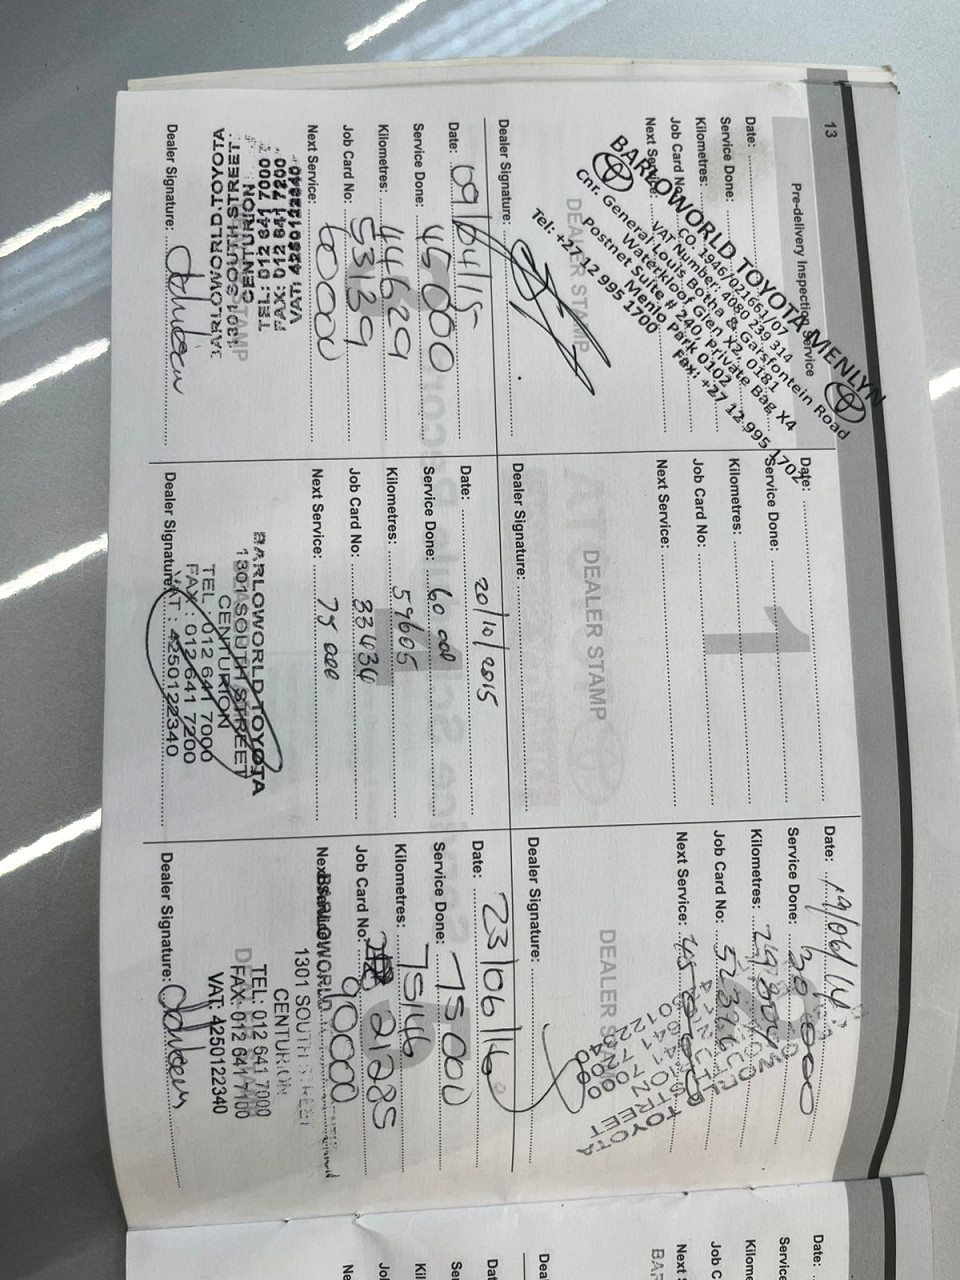 13
Pre-delivery Inspection Service
Date:
Service Done:
Kilometres:
Job Card No:
Next Service:
BARLOWORLD TOYOTA MENLYN
CO. 1946/021661/07
VAT Number: 4080 239 314
Cnr. General Louis Botha & Garsfontein Road
Waterkloof Glen X2, 0181
Postnet Suite # 240 Private Bag X4
Menlo Park 0102
Tel: +27 12 995 1700 Fax: +27 12 995 1702
DEALER STAMP
Dealer Signature:
1
Date:
Service Done:
Kilometres:
Job Card No:
Next Service:
DEALER STAMP
Dealer Signature:
Date: 19/06/14
Service Done: 30 000
Kilometres:
Job Card No:
Next Service: 45 000
TOYOTA
STREET
DEALER S
Dealer Signature:
Date: 09/04/15
Service Done: 45000
Kilometres: 44629
Job Card No: 53139
Next Service: 60000
VAT: 4250122340
FAX: 012 641 7200
TEL: 012 641 7000
CENTURION
1301 SOUTH STREET
BARLOWORLD TOYOTA
Dealer Signature:
Date: 20/10/2015
Service Done: 60 000
Kilometres: 59605
Job Card No: 33434
Next Service: 75 000
BARLOWORLD TOYOTA
1301 SOUTH STREET
CENTURION
TEL: 012 641 7000
FAX: 012 641 7200
VAT: 4250122340
Dealer Signature:
Date: 23/06/16
Service Done: 75000
Kilometres: 75146
Job Card No: 21285
Next Service: 90000
BARLOWORLD
1301 SOUTH STREET
CENTURION
TEL: 012 641 7000
FAX: 012 641 7100
VAT: 4250122340
Dealer Signature:
Date:
Service
Kilome
Job C
Next S
BAR
Deal
Dat
Se
Kil
Jo
Ne